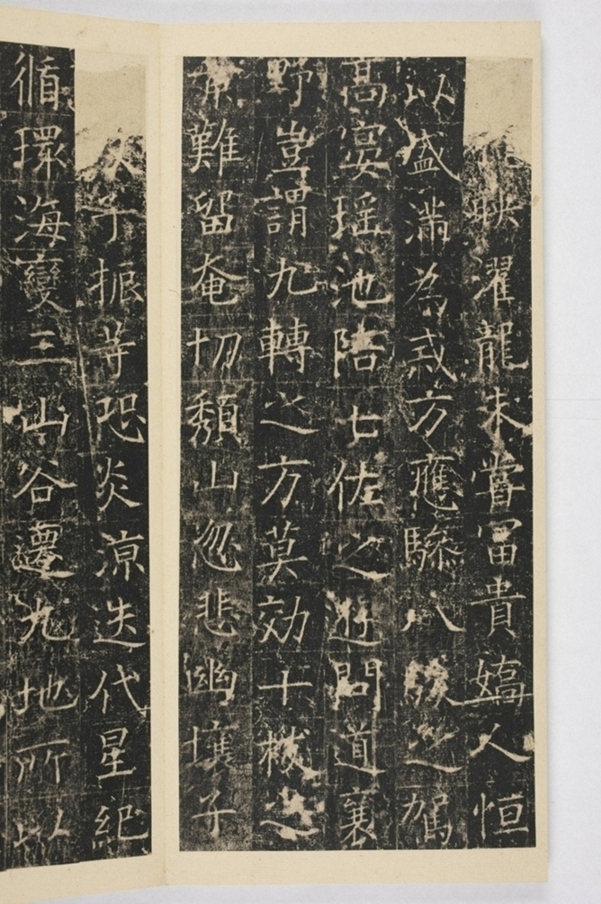 映濯龍未嘗富貴嬌人恒
以盛滿為戒方應驂八駿之駕
高宴瑤池陪七佐之遊問道襄
野豈謂九轉之方莫効十之
難留奄切頹山忽悲幽壤子
子振等恐炎涼迭代星紀
循環海變三山谷遷九地所以